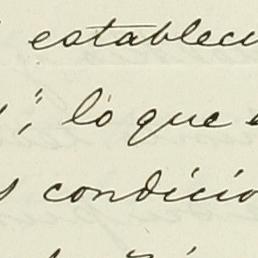 establecu
s"; lo que
s condicio